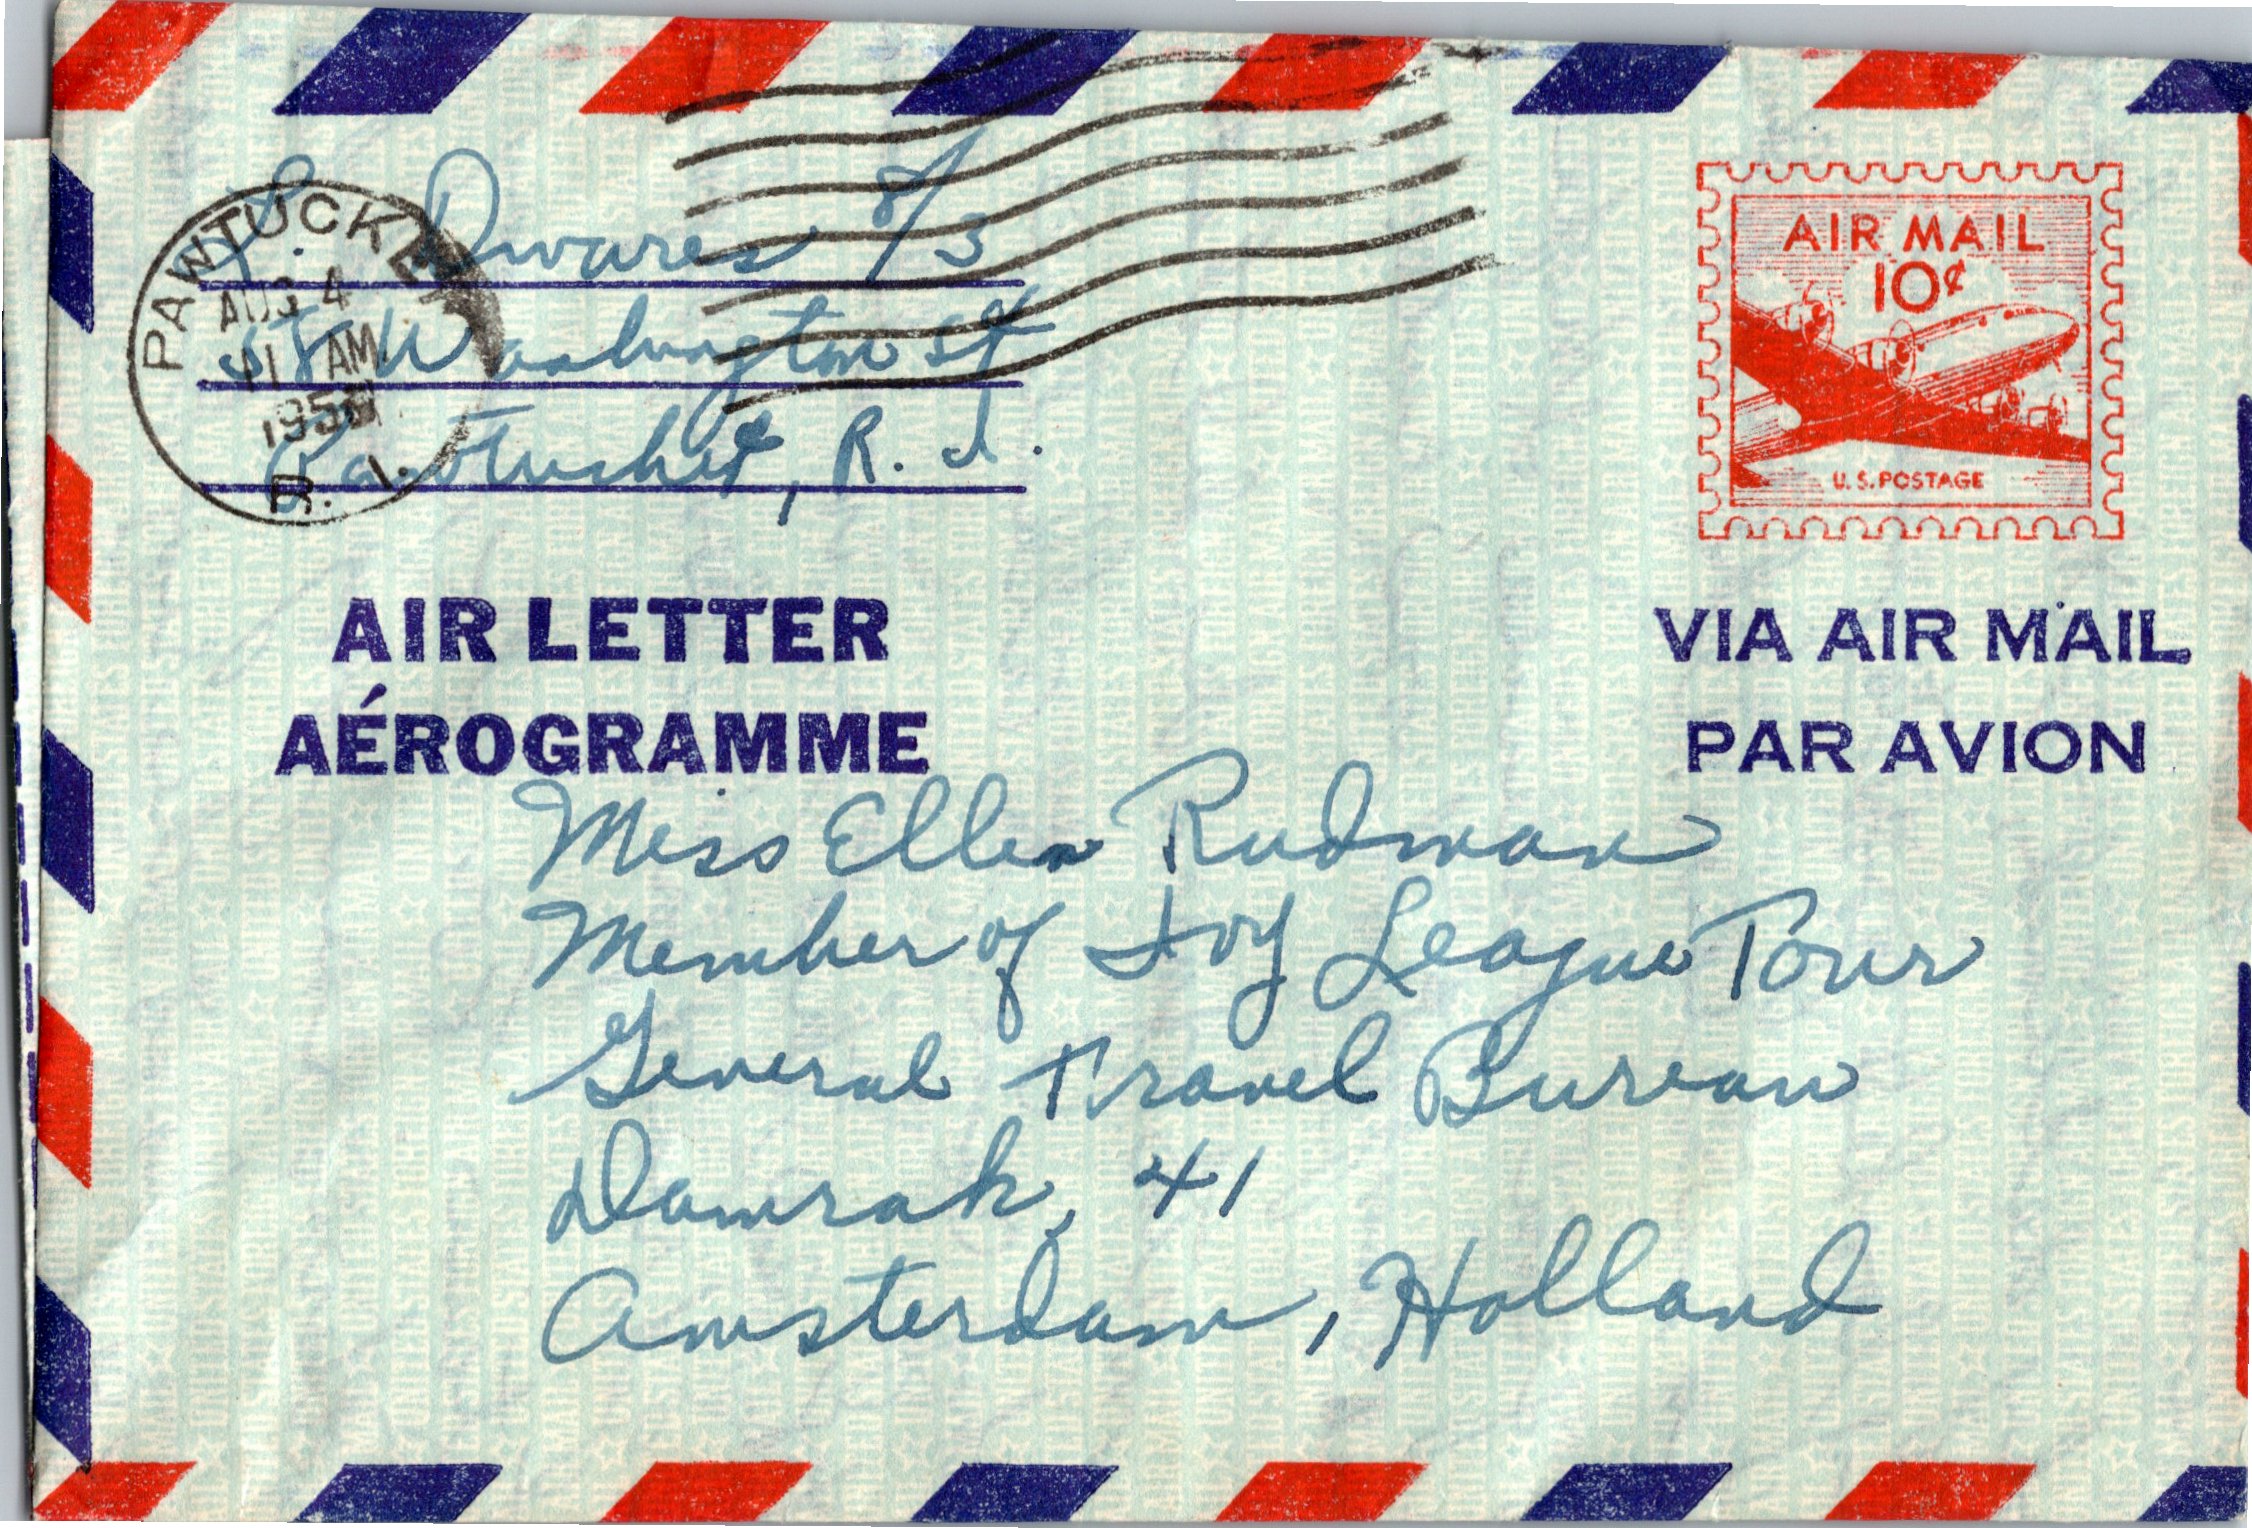 PAWTUCKET
AUG 4
11 AM
R. I.
Dwares 8/3
Washington St
Pawtucket, R. I.
AIR MAIL
10¢
U.S. POSTAGE
AIR LETTER
AÉROGRAMME
VIA AIR MAIL
PAR AVION
Miss Ellen Rudman
Member of Ivy League Tour
General Travel Bureau
Damrak, 41
Amsterdam, Holland